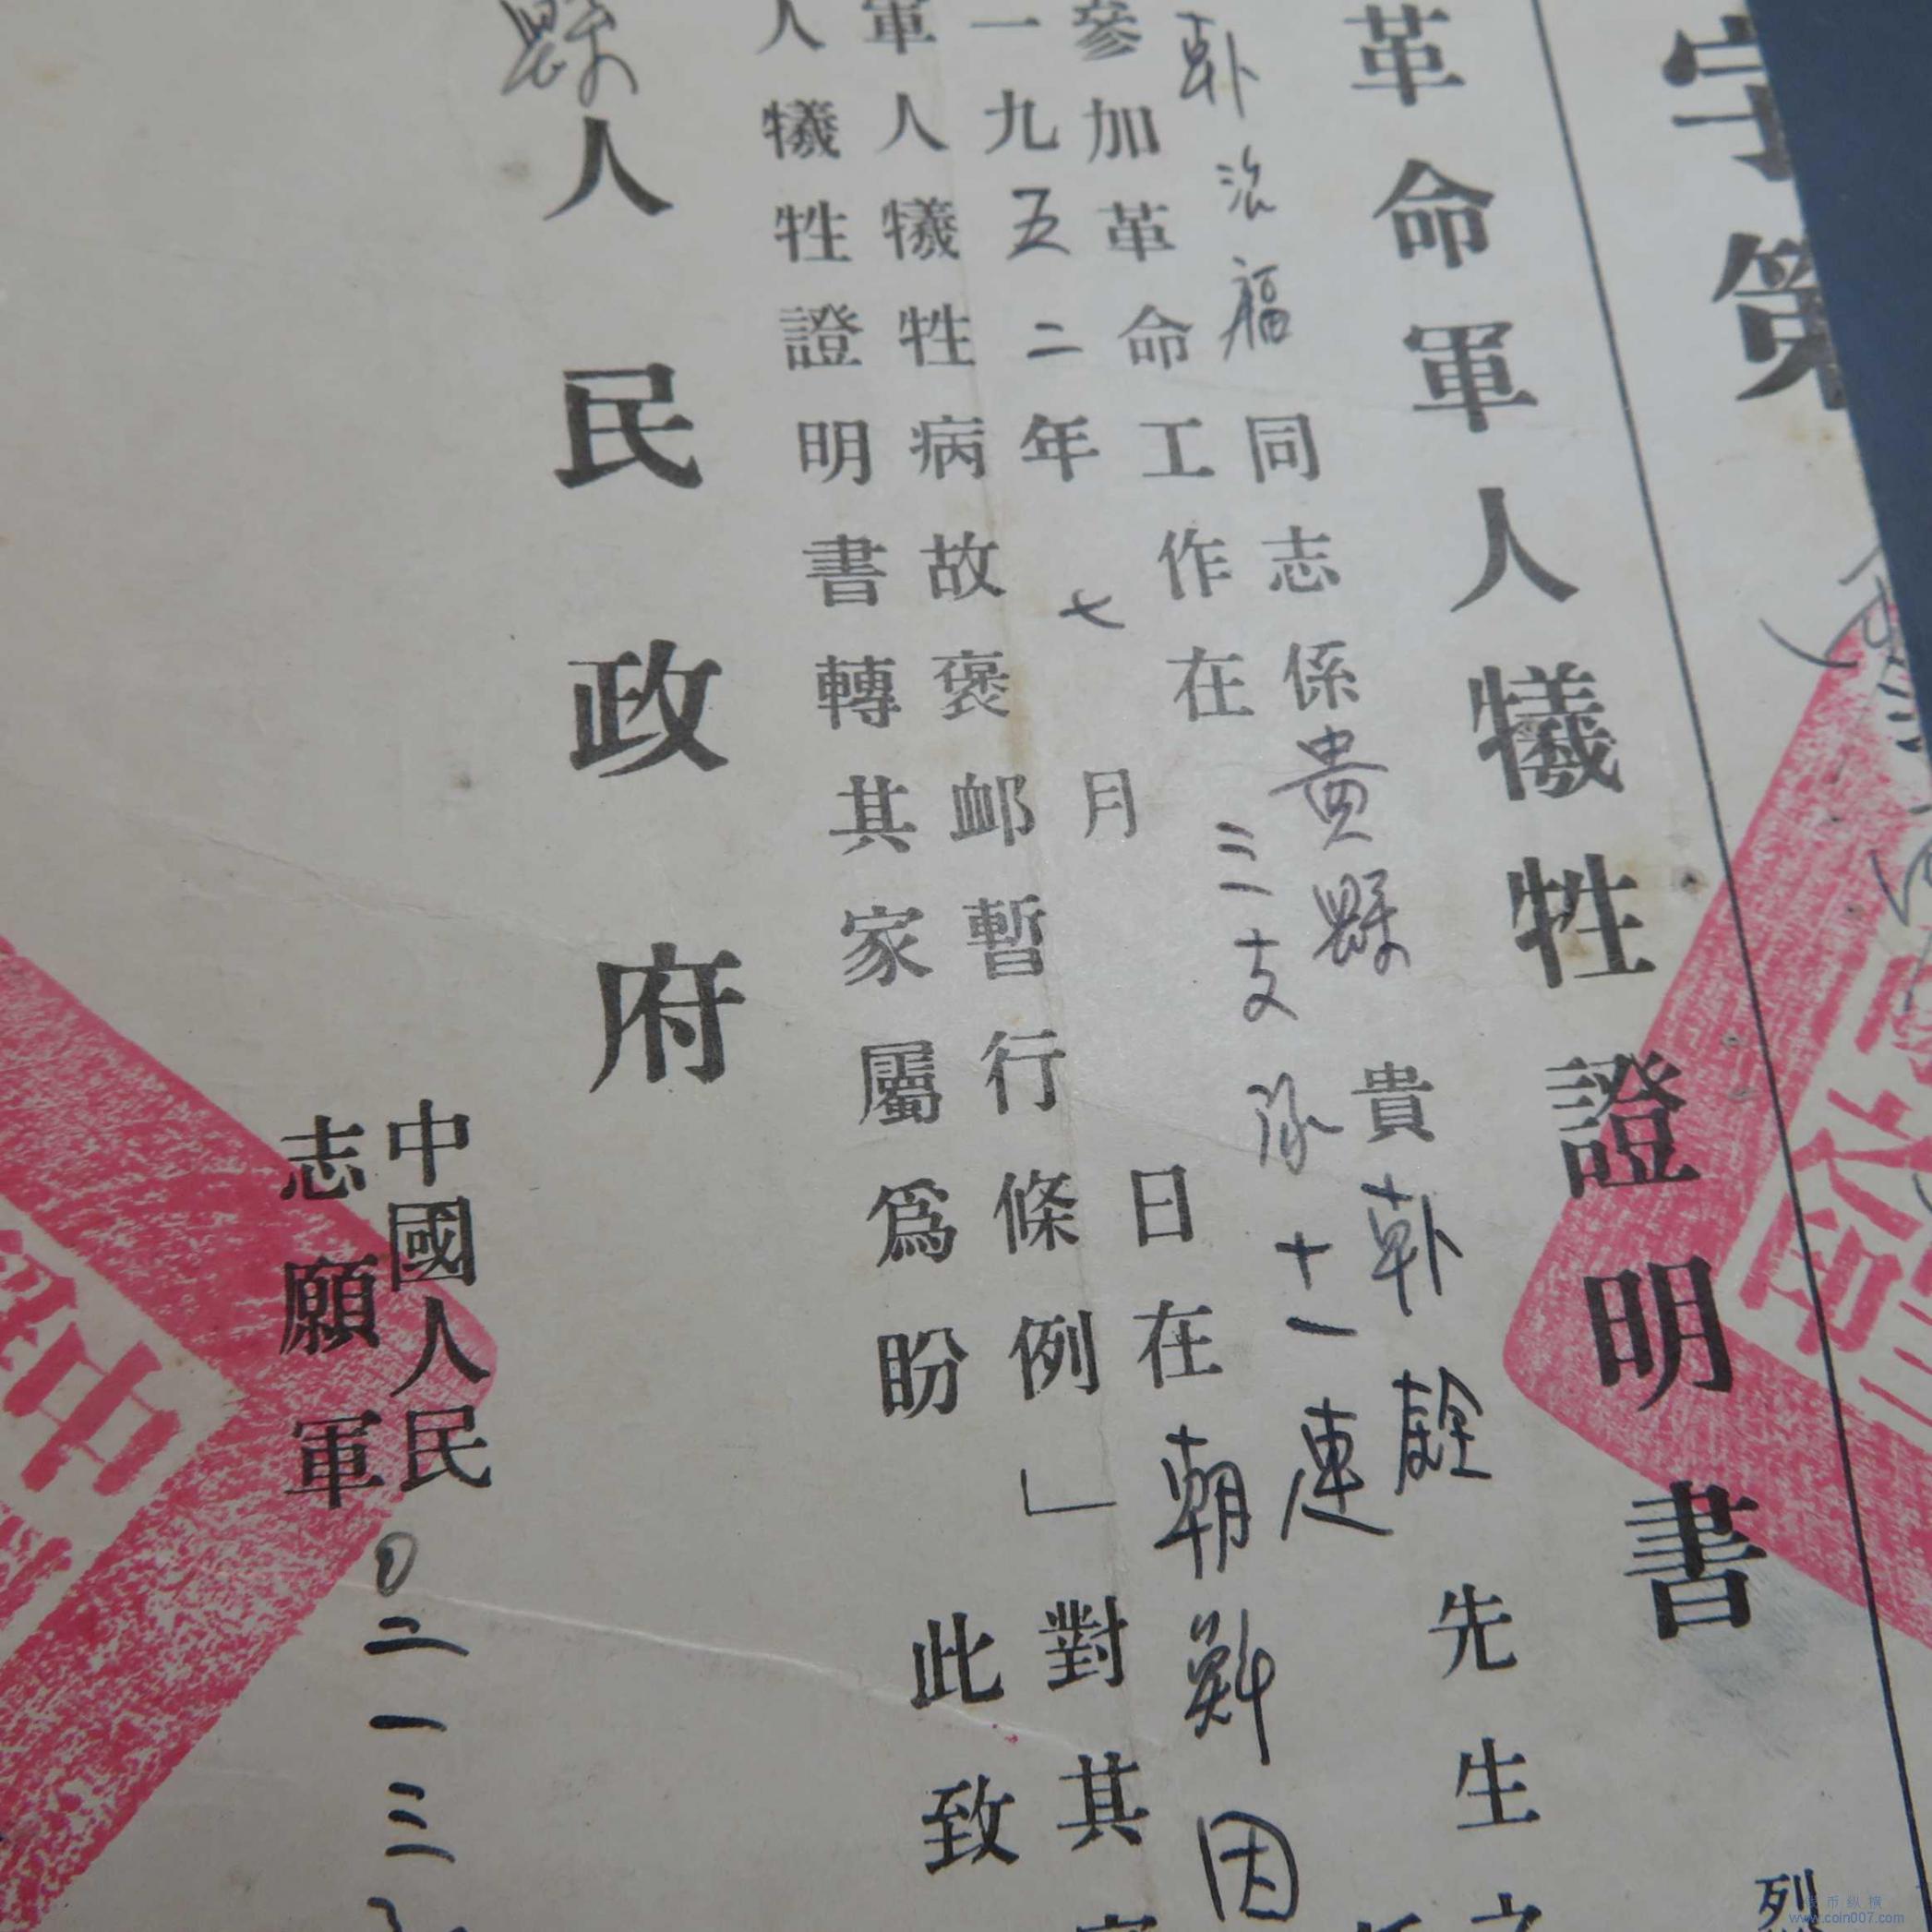 字第
革命軍人犧牲證明書
治福同志係貴縣貴先生之
參加革命工作在三支隊十一連
一九五二年七月日在朝鮮因
軍人犧牲病故褒卹暫行條例」對其家
人犧牲證明書轉其家屬爲盼
此致
縣人民政府
中國人民
志願軍
〇二一三
烈
www.coin007.com